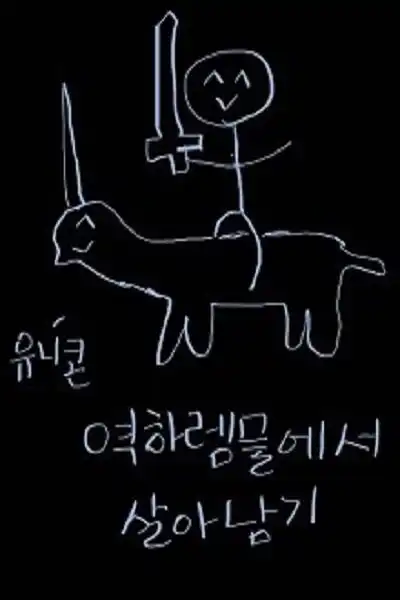 유니콘
역하렘물에서
살아남기